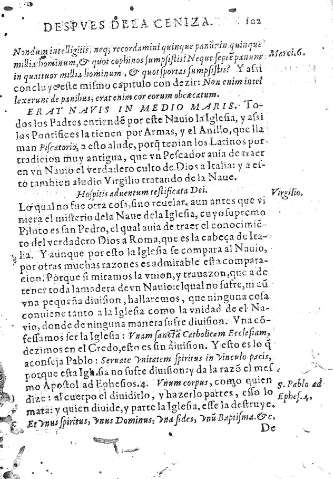 DESPVES DE LA CENIZA. 102
Nondum intelligitis, neq; recordamini quinque panũ in quinque
millia hominum, & quot cophinos sumpsistis? Neque septẽ panum
in quatuor millia hominum, & quot sportas sumpsistis? Y assi
concluye este mismo capitulo con dezir: Non enim intel
lexerunt de panibus, erat enim cor eorum obcæcatum.
Marci. 6.
ERAT NAVIS IN MEDIO MARIS. To
dos los Padres entiendẽ por este Nauio la Iglesia, y assi
los Pontifices la tienen por Armas, y el Anillo, que lla
man Piscatoris, a esto alude, porq̃ tenian los Latinos por
tradicion muy antigua, que vn Pescador auia de traer
en vn Nauio el verdadero culto de Dios a Italia: y a es-
to tambien aludio Virgilio tratando de la Naue.
Hospitis aduentum testificata Dei.
Virgilio.
Lo qual no fue otra cosa, sino reuelar, aun antes que vi
niera el misterio dela Naue dela Iglesia, cuyo supremo
Piloto es san Pedro, el qual auia de traer el conocimiẽ
to del verdadero Dios a Roma, que es la cabeça de Ita-
lia. Y aunque por esto la Iglesia se compara al Nauio,
por otras muchas razones es admirable esta compara-
cion. Porque si miramos la vnion, y trauazon, que a de
tener toda la madera de vn Nauio: el qual no sufre, ni aũ
vna pequeña diuision, hallaremos, que ninguna cosa
conuiene tanto a la Iglesia como la vnidad de el Na-
uio, donde de ninguna manera sufre diuision. Vna cõ-
fessamos ser la Iglesia: Vnam sanctã Catholicam Ecclesiam,
dezimos en el Credo, esto es sin diuision. Y esto es lo q̃
aconseja Pablo: Seruate vnitatem spiritus in vinculo pacis,
porque esta Iglesia no sufre diuision: y da la razõ el mes
mo Apostol ad Ephesos. 4. Vnum corpus, como quien
dize: al cuerpo el diuidirlo, y hazerlo partes, esso lo
mata: y quien diuide, y parte la Iglesia, esse la destruye.
Et vnus spiritus, vnus Dominus, vna fides, vnũ Baptisma, &c.
S. Pablo ad
Ephes. 4.
De